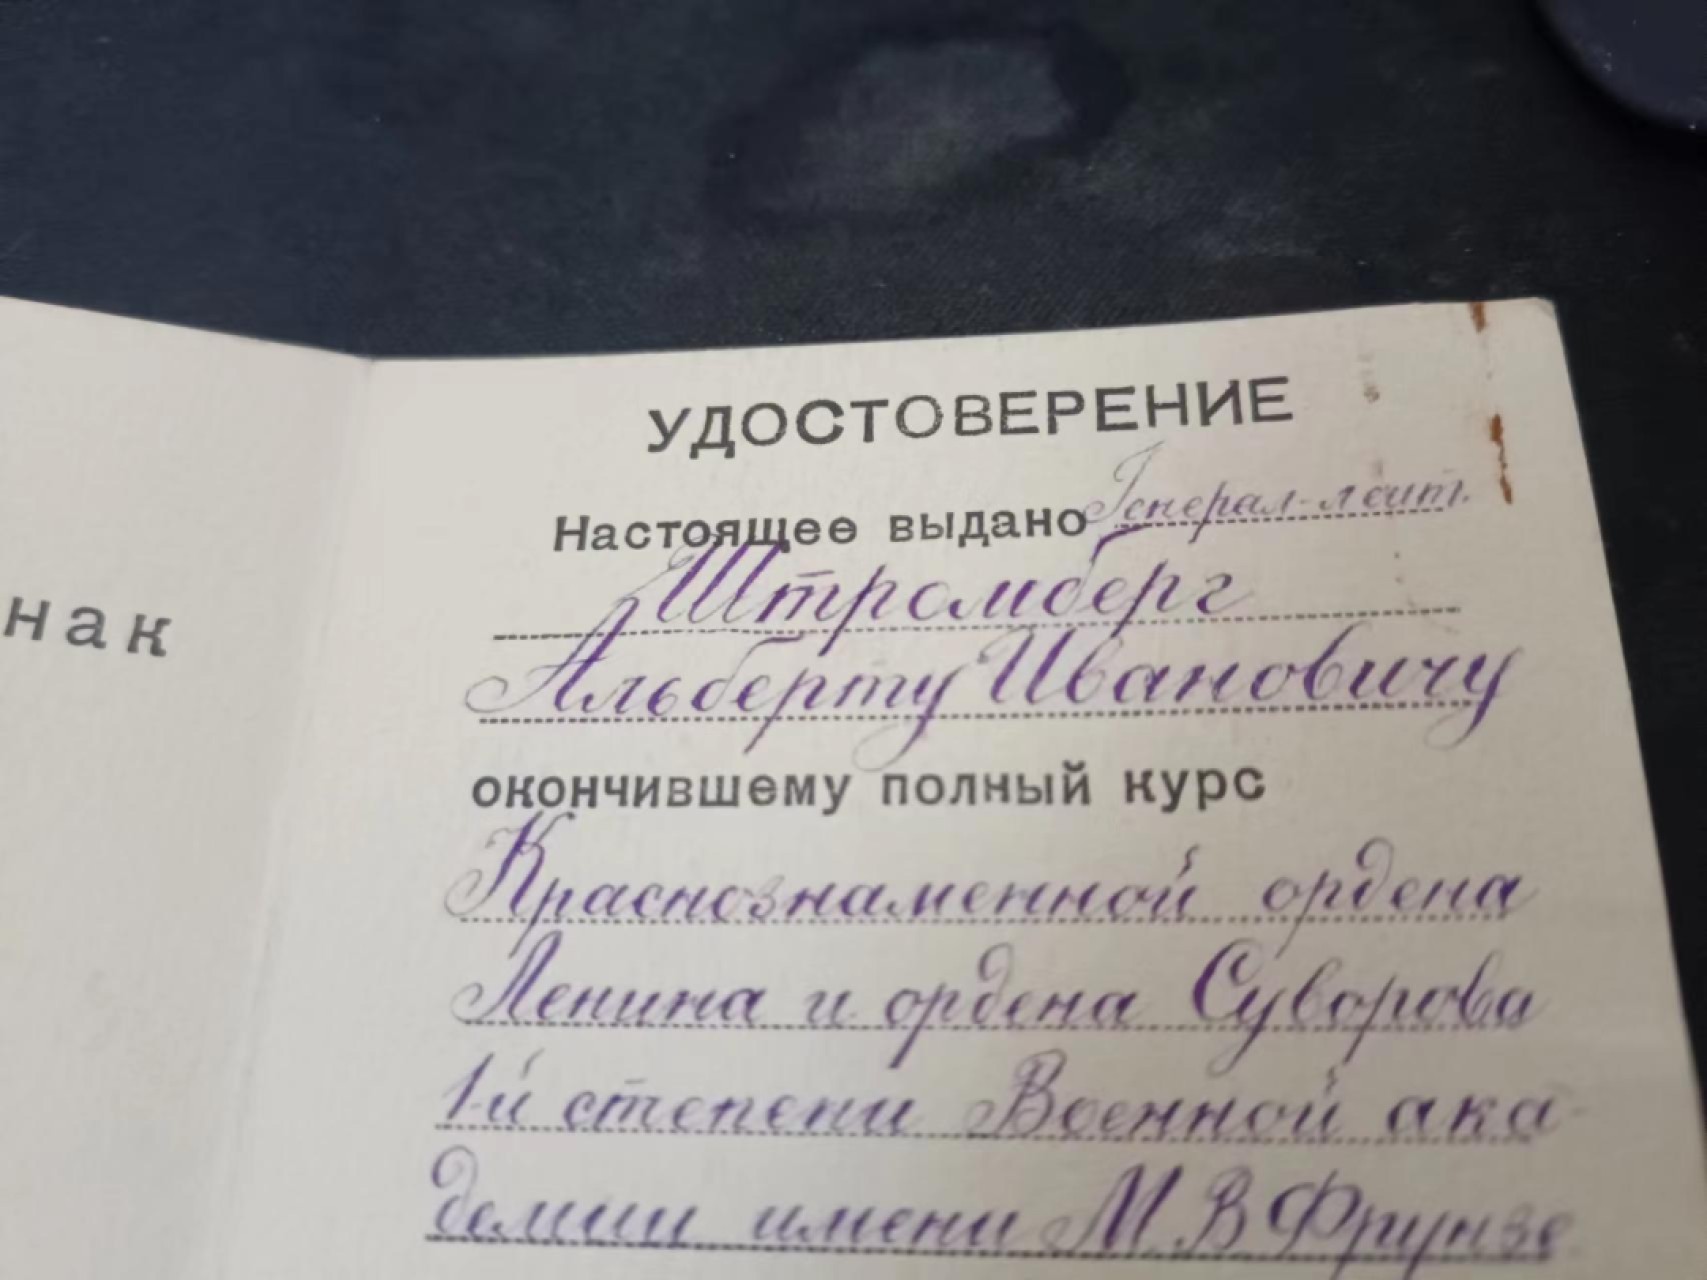 нак
УДОСТОВЕРЕНИЕ
Настоящее выдано Генерал-лейт.
Штромберг
Альберту Ивановичу
окончившему полный курс
Краснознаменной ордена
Ленина и ордена Суворова
1-й степени Военной ака-
демии имени М.В Фрунзе